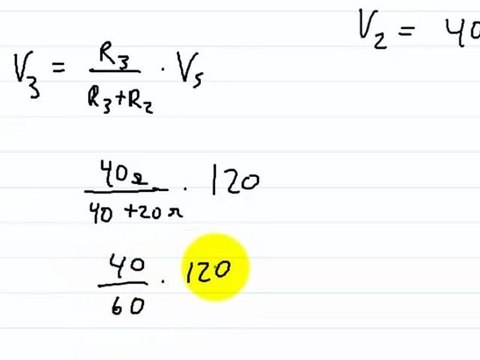 V₂ = 40
V₃ = R₃ / (R₃+R₂) · Vₛ
40Ω / (40 +20Ω) · 120
40 / 60 · 120